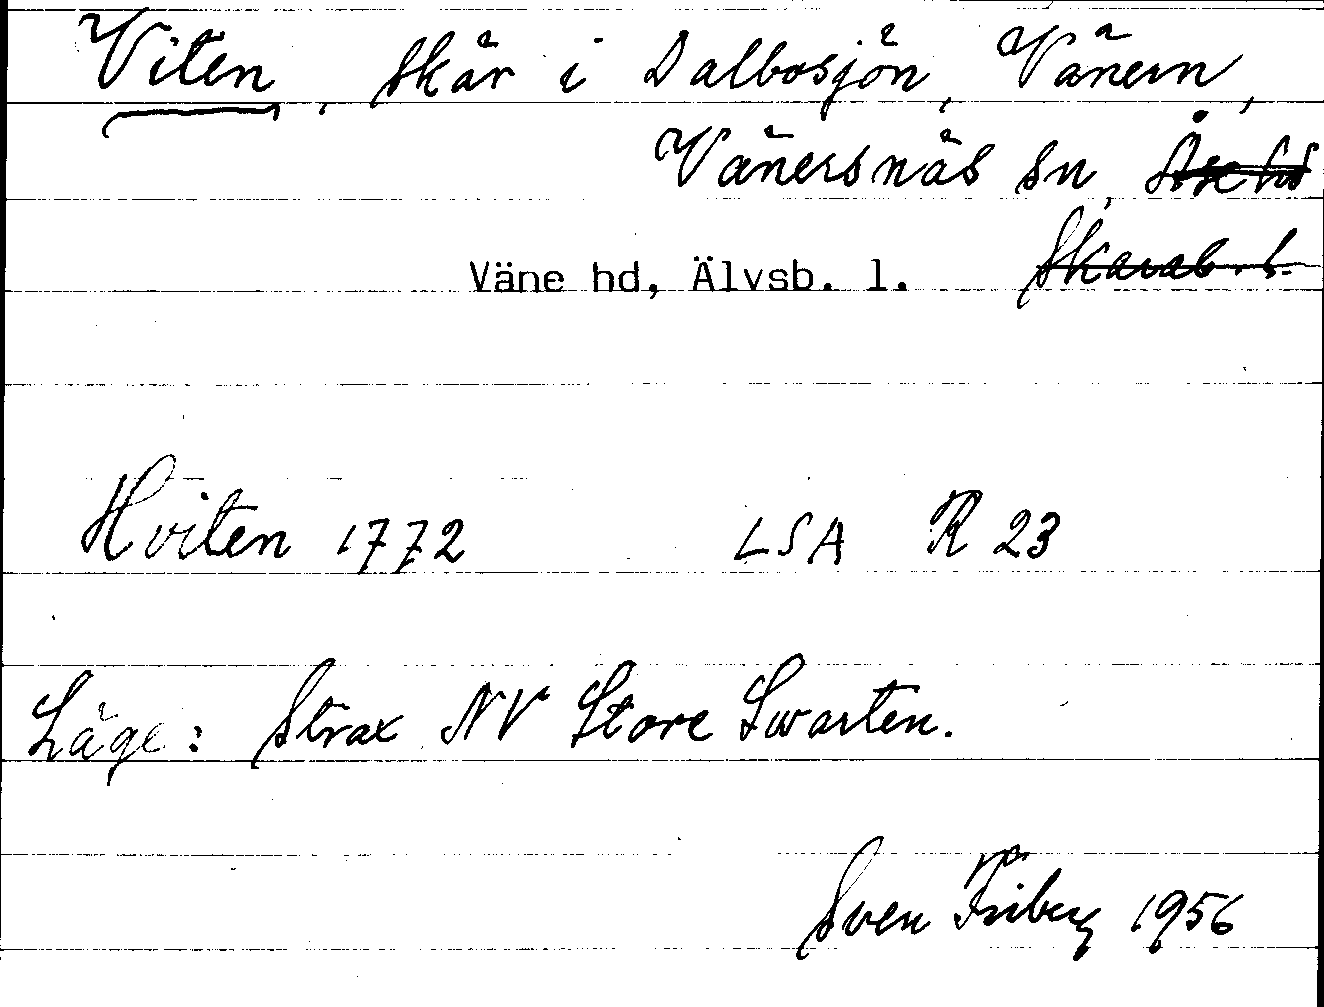 Viten, skär i Dalbosjön, Vänern,
Vänersnäs sn, Åse hd
Väne hd, Älvsb. l. Skarab. l.
Hviten 1772 LSA R 23
Läge: Strax NV Store Swarten.
Sven Friberg 1956